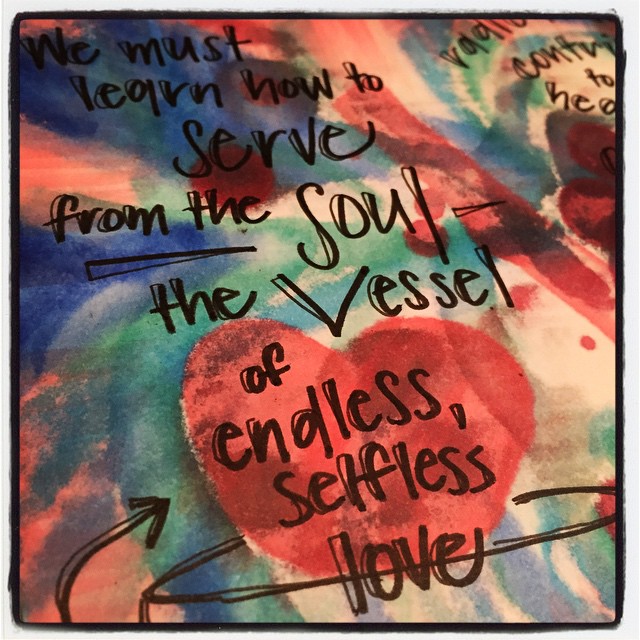 We must
learn how to
serve
from the Soul—
the Vessel
of
endless,
selfless
love
to